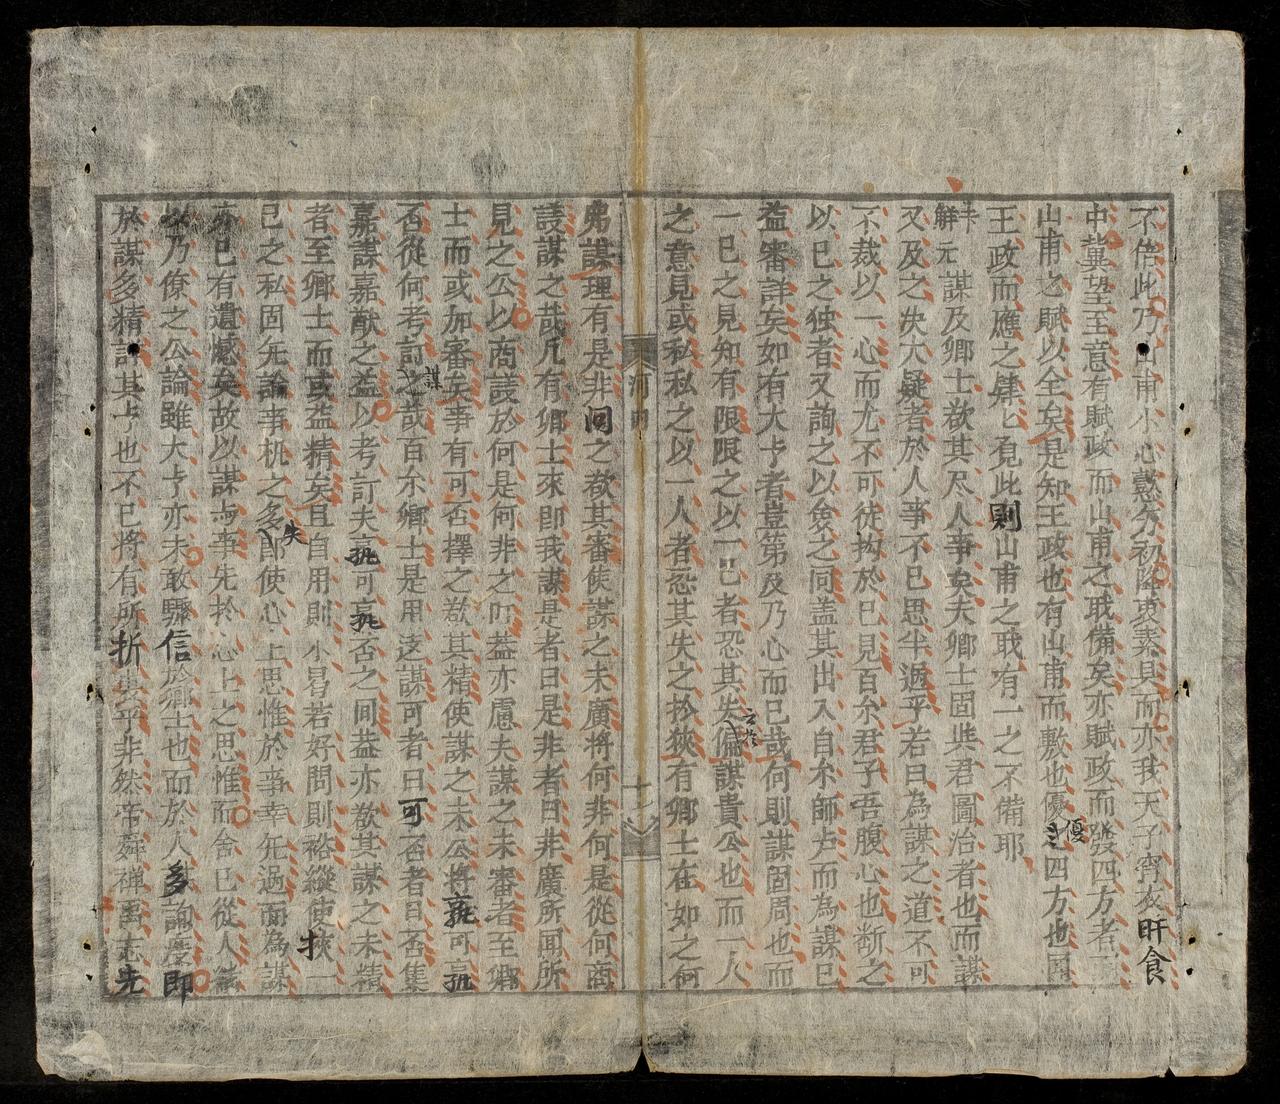 不倍此乃山甫小心懿矣初降衷素具而亦我天子宵衣旰食
中冀望至意有賦政而山甫之職備矣亦賦政而發四方者
山甫之賦以全矣是知王政也有山甫而敷也優優四方也固
王政而應之肆匕見此則山甫之職有一之不備耶
解元
謀及卿士欲其尽人事矣夫卿士固共君圖治者也而謀
又及之失大疑者於人事不已思半遐乎若曰為謀之道不可
不裁以一心而尤不可徒拘於已見百尔君子吾腹心也断之
以已之独者又詢之以衆之同盖其出入自尔師占而為謀已
益審詳矣如有大亊者豈第及乃心而已哉何則謀固周也而
一已之見知有限限之以一已者恐其失之於偏謀貴公也而一人
之意見或私私之以一人者恐其失之於狹有卿士在如之何
河曰
十七
弗謀理有是非囘之欲其審使謀之未廣將何非何是從何商
諉謀之哉凡有卿士來即我謀是者曰是非者曰非廣所聞所
見之公以商諉於何是何非之中益亦慮夫謀之未審者至卿
士而或加審矣事有可否擇之欲其精使謀之未公將孰可孰
否從何考訂之謀哉百尔卿士是用迖謀可者曰可否者曰否集
嘉謀嘉猷之益以考訂夫孰可孰否之同益亦欲其謀之未精
者至卿士而或益精矣且自用則小曷若好問則裕縱使挾一
已之私固先論事机之多失即使心上思惟於事幸旡過而為謀
亦已有遺憾矣故以謀与事先於心上之思惟而舍已從人
乃僚之公論雖大亊亦未敢驟信於卿士也而於人多論處即
於謀多精許其亊也不已將有所折其平非然帝舜禪禹志先